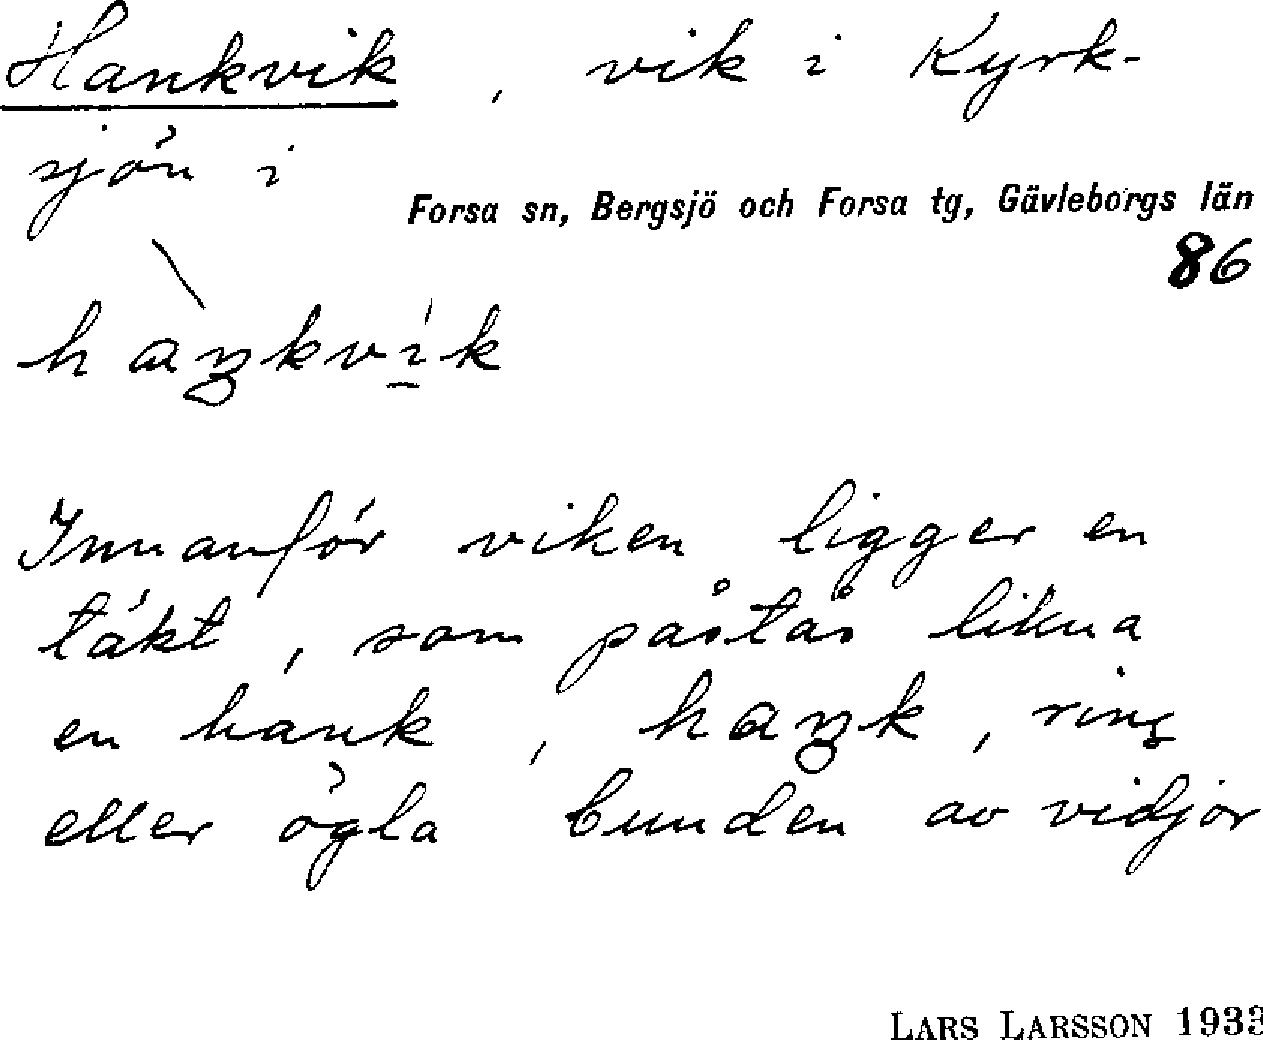 Hankvik, vik i Kyrk-
sjön i
Forsa sn, Bergsjö och Forsa tg, Gävleborgs län
86
hàŋkvík
Innanför viken ligger en
täkt, som påstås likna
en hank, haŋk, ring
eller ögla bunden av vidjor
LARS LARSSON 1933